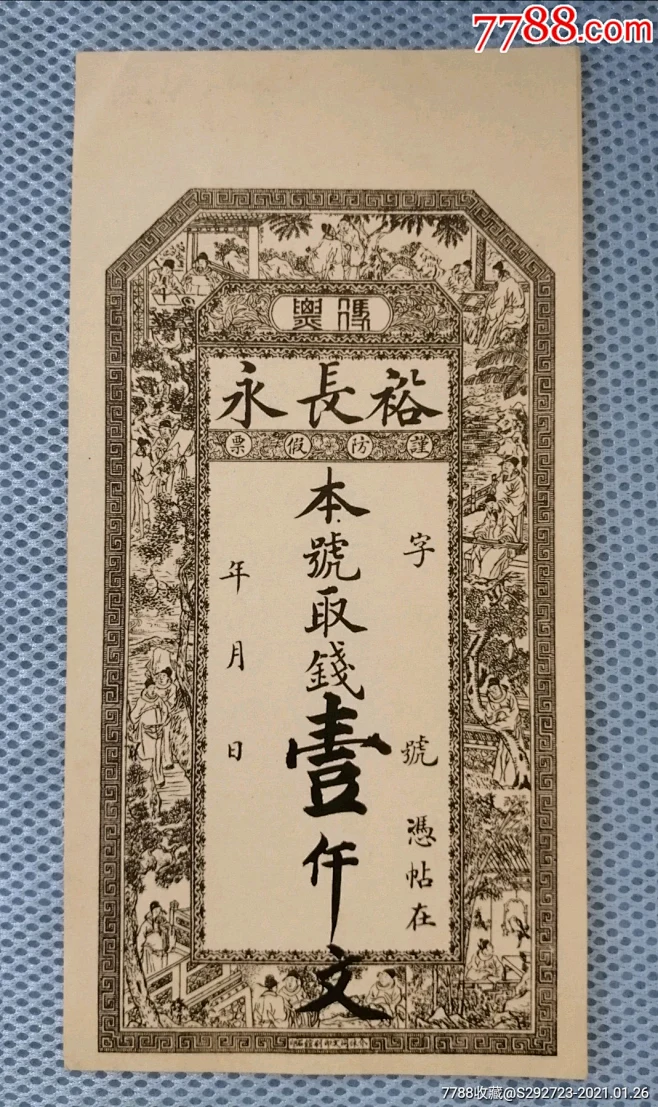 7788.com
馮輿
裕長永
謹防假票
字 號 憑帖在
本號取錢壹仟文
年 月 日
7788收藏@S292723-2021.01.26